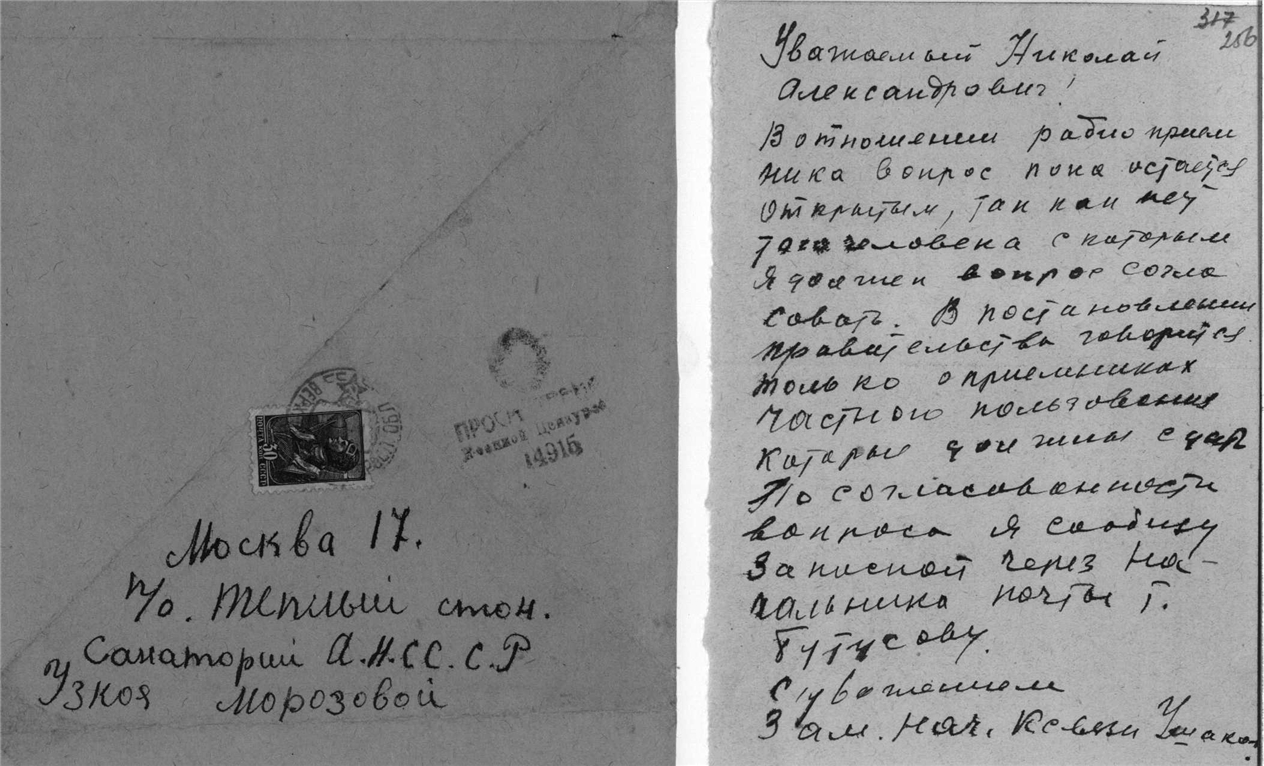 ПОЧТА
30
СССР
ПРОСМ
Военной Цензурой
14915
Москва 17.
п/о. Теплый стон.
Санаторий А.Н.СС.С.Р
Узкоя Морозовой
317
256
Уважаемый Николай
Александрович!
В отношении радио прием
ника вопрос пока остается
открытым, так как нет
того человека с которым
я должен вопрос согла
совать. В постановлении
правительства говорится
только о приемниках
частного пользования
которые должны сдар
По согласованности
вопроса я сообщу
запиской через На-
чальника почты т.
Бутусову.
С уважением
Зам. нач. Ксвязи Ушаков